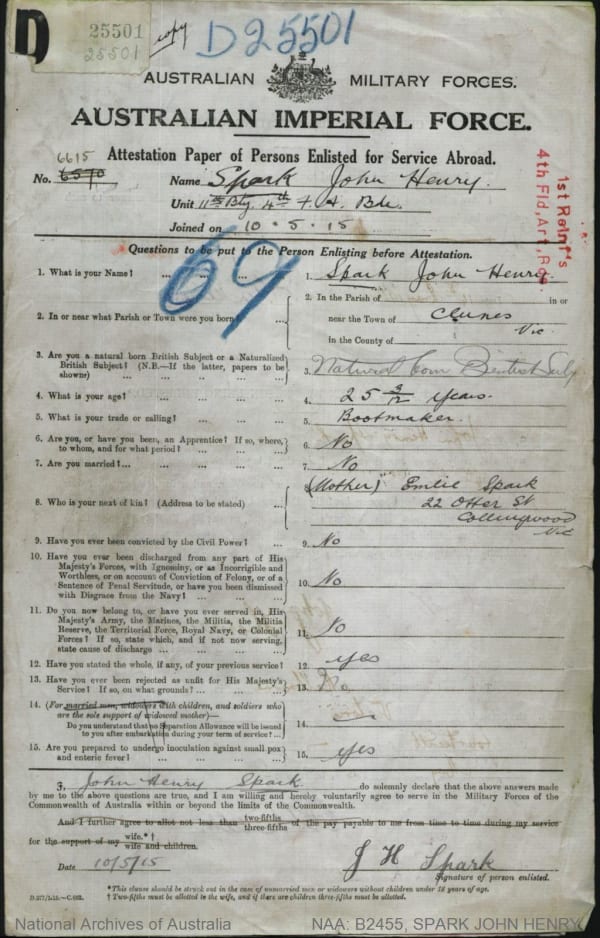 D
25501
25501
copy
D25501
AUSTRALIAN MILITARY FORCES.
AUSTRALIAN IMPERIAL FORCE.
Attestation Paper of Persons Enlisted for Service Abroad.
6615
No. 6570
Name Spark John Henry.
Unit 11th Bty 4th F. A. Bde.
Joined on 10.5.15
1st Reinf's
4th Fld, Art, Bge.
69
Questions to be put to the Person Enlisting before Attestation.
1. What is your Name? ... ... ... 1. Spark John Henry.
2. In or near what Parish or Town were you born? ... 2. In the Parish of in or
near the Town of Clunes
Vic
in the County of
3. Are you a natural born British Subject or a Naturalized
British Subject? (N.B.—If the latter, papers to be
shown) ... ... ... ... 3. Natural born British Subj
4. What is your age? ... ... ... 4. 25 3/12 years.
5. What is your trade or calling? ... ... ... 5. Bootmaker.
6. Are you, or have you been, an Apprentice? If so, where,
to whom, and for what period? ... ... ... 6. No
7. Are you married? ... ... ... ... 7. No
8. Who is your next of kin? (Address to be stated) ... 8. (Mother) Emlie Spark
22 Otter St
Collingwood
Vic
9. Have you ever been convicted by the Civil Power? ... 9. No
10. Have you ever been discharged from any part of His
Majesty's Forces, with Ignominy, or as Incorrigible and
Worthless, or on account of Conviction of Felony, or of a
Sentence of Penal Servitude, or have you been dismissed
with Disgrace from the Navy? ... ... ... 10. No
11. Do you now belong to, or have you ever served in, His
Majesty's Army, the Marines, the Militia, the Militia
Reserve, the Territorial Force, Royal Navy, or Colonial
Forces? If so, state which, and if not now serving,
state cause of discharge ... ... ... ... 11. No
12. Have you stated the whole, if any, of your previous service? 12. yes
13. Have you ever been rejected as unfit for His Majesty's
Service? If so, on what grounds? ... ... ... 13. No
14. (For married men, widowers with children, and soldiers who
are the sole support of widowed mother)—
Do you understand that no Separation Allowance will be issued
to you after embarkation during your term of service? ... 14.
15. Are you prepared to undergo inoculation against small pox
and enteric fever? ... ... ... ... 15. yes
I, John Henry Spark do solemnly declare that the above answers made
by me to the above questions are true, and I am willing and hereby voluntarily agree to serve in the Military Forces of the
Commonwealth of Australia within or beyond the limits of the Commonwealth.
And I further agree to allot not less than two-fifths three-fifths of the pay payable to me from time to time during my service
for the support of my wife.*† wife and children.
Date 10/5/15
J H Spark
Signature of person enlisted.
*This clause should be struck out in the case of unmarried men or widowers without children under 18 years of age.
† Two-fifths must be allotted to the wife, and if there are children three-fifths must be allotted.
National Archives of Australia
NAA: B2455, SPARK JOHN HENRY